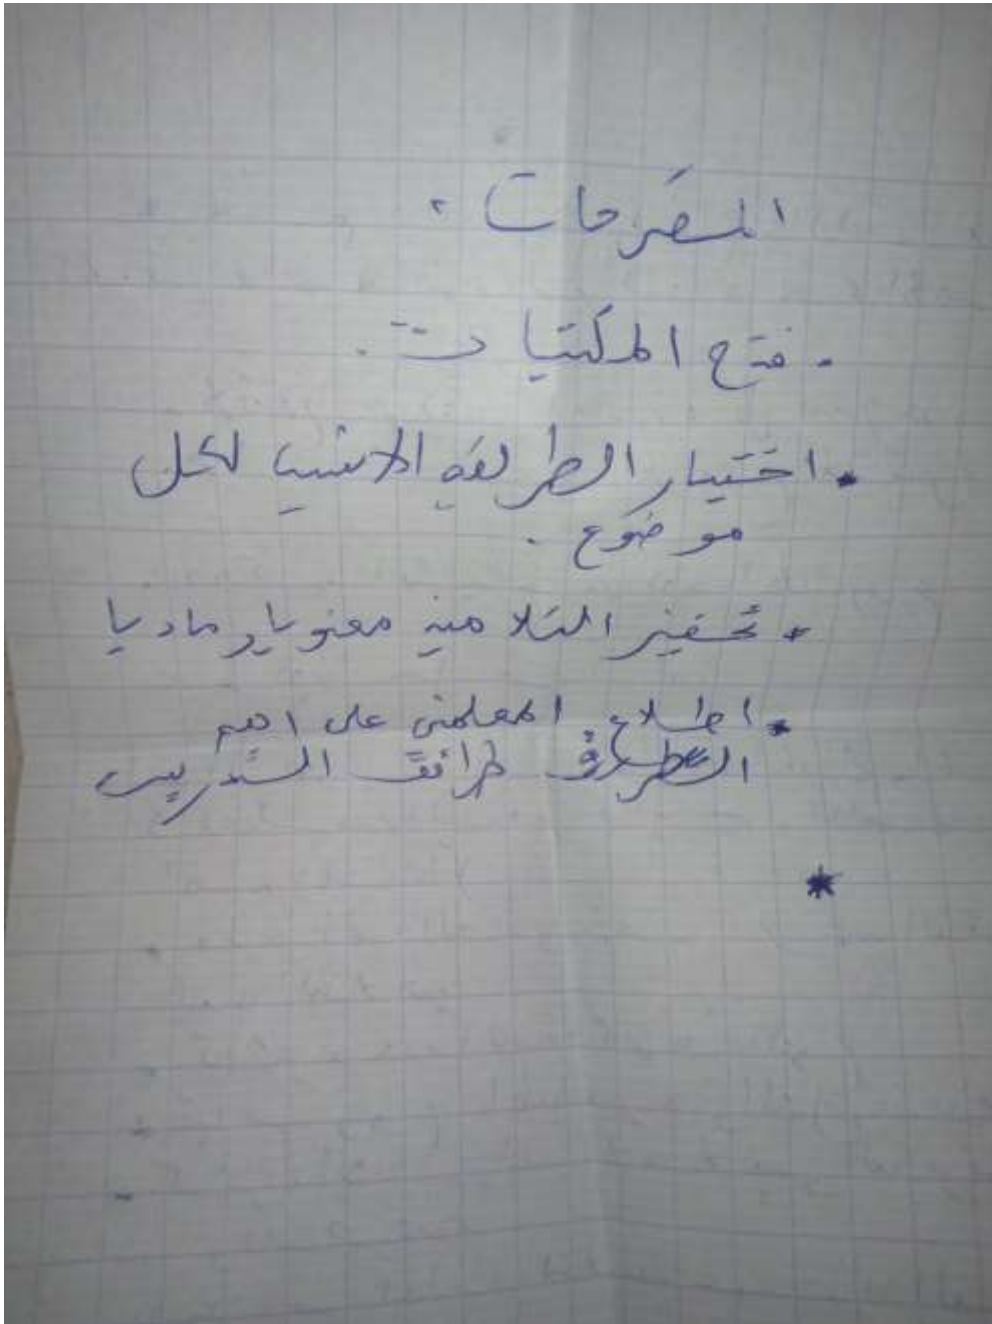 المقترحات:
- فتح المكتبات.
* اختيار الطريقة الانسب لكل
موضوع.
* تحفيز التلاميذ معنويا وماديا
* اطلاع المعلمين على اهم
الطرق طرائق التدريس
*